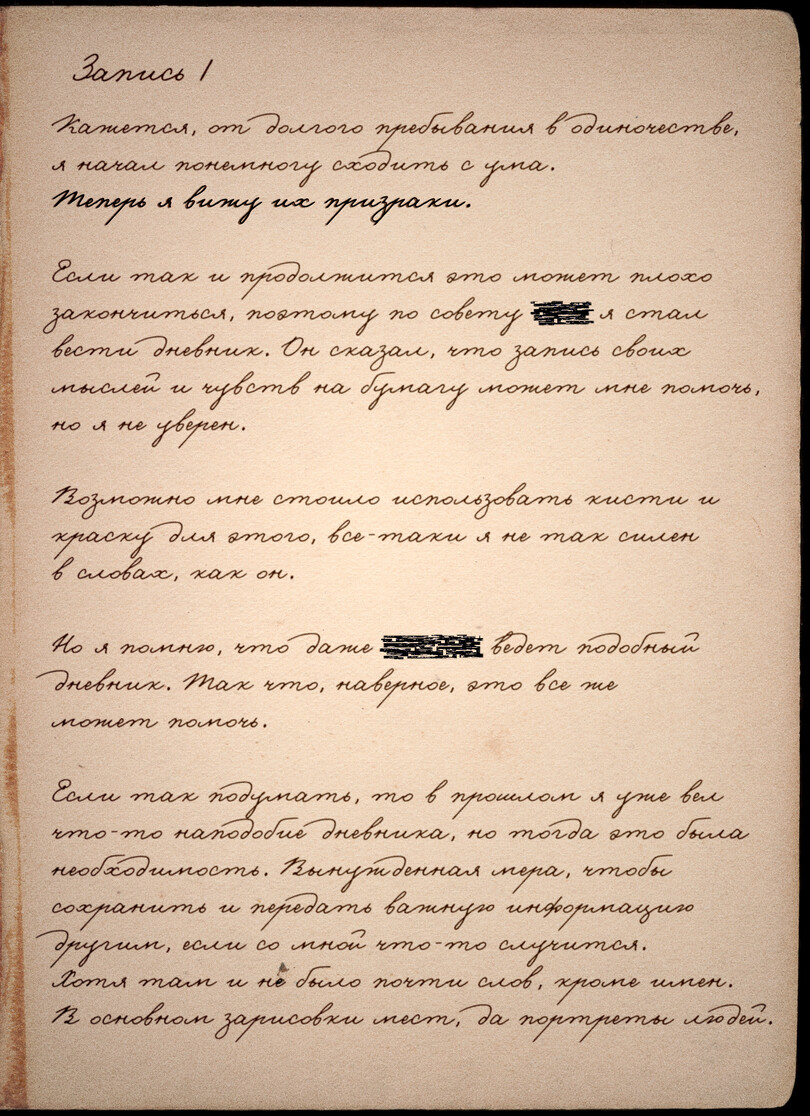 Запись 1
Кажется, от долгого пребывания в одиночестве,
я начал понемногу сходить с ума.
Теперь я вижу их призраки.
Если так и продолжится это может плохо
закончиться, поэтому по совету я стал
вести дневник. Он сказал, что запись своих
мыслей и чувств на бумагу может мне помочь,
но я не уверен.
Возможно мне стоило использовать кисти и
краску для этого, все-таки я не так силен
в словах, как он.
Но я помню, что даже ведет подобный
дневник. Так что, наверное, это все же
может помочь.
Если так подумать, то в прошлом я уже вел
что-то наподобие дневника, но тогда это была
необходимость. Вынужденная мера, чтобы
сохранить и передать важную информацию
другим, если со мной что-то случится.
Хотя там и не было почти слов, кроме имен.
В основном зарисовки мест, да портреты людей.